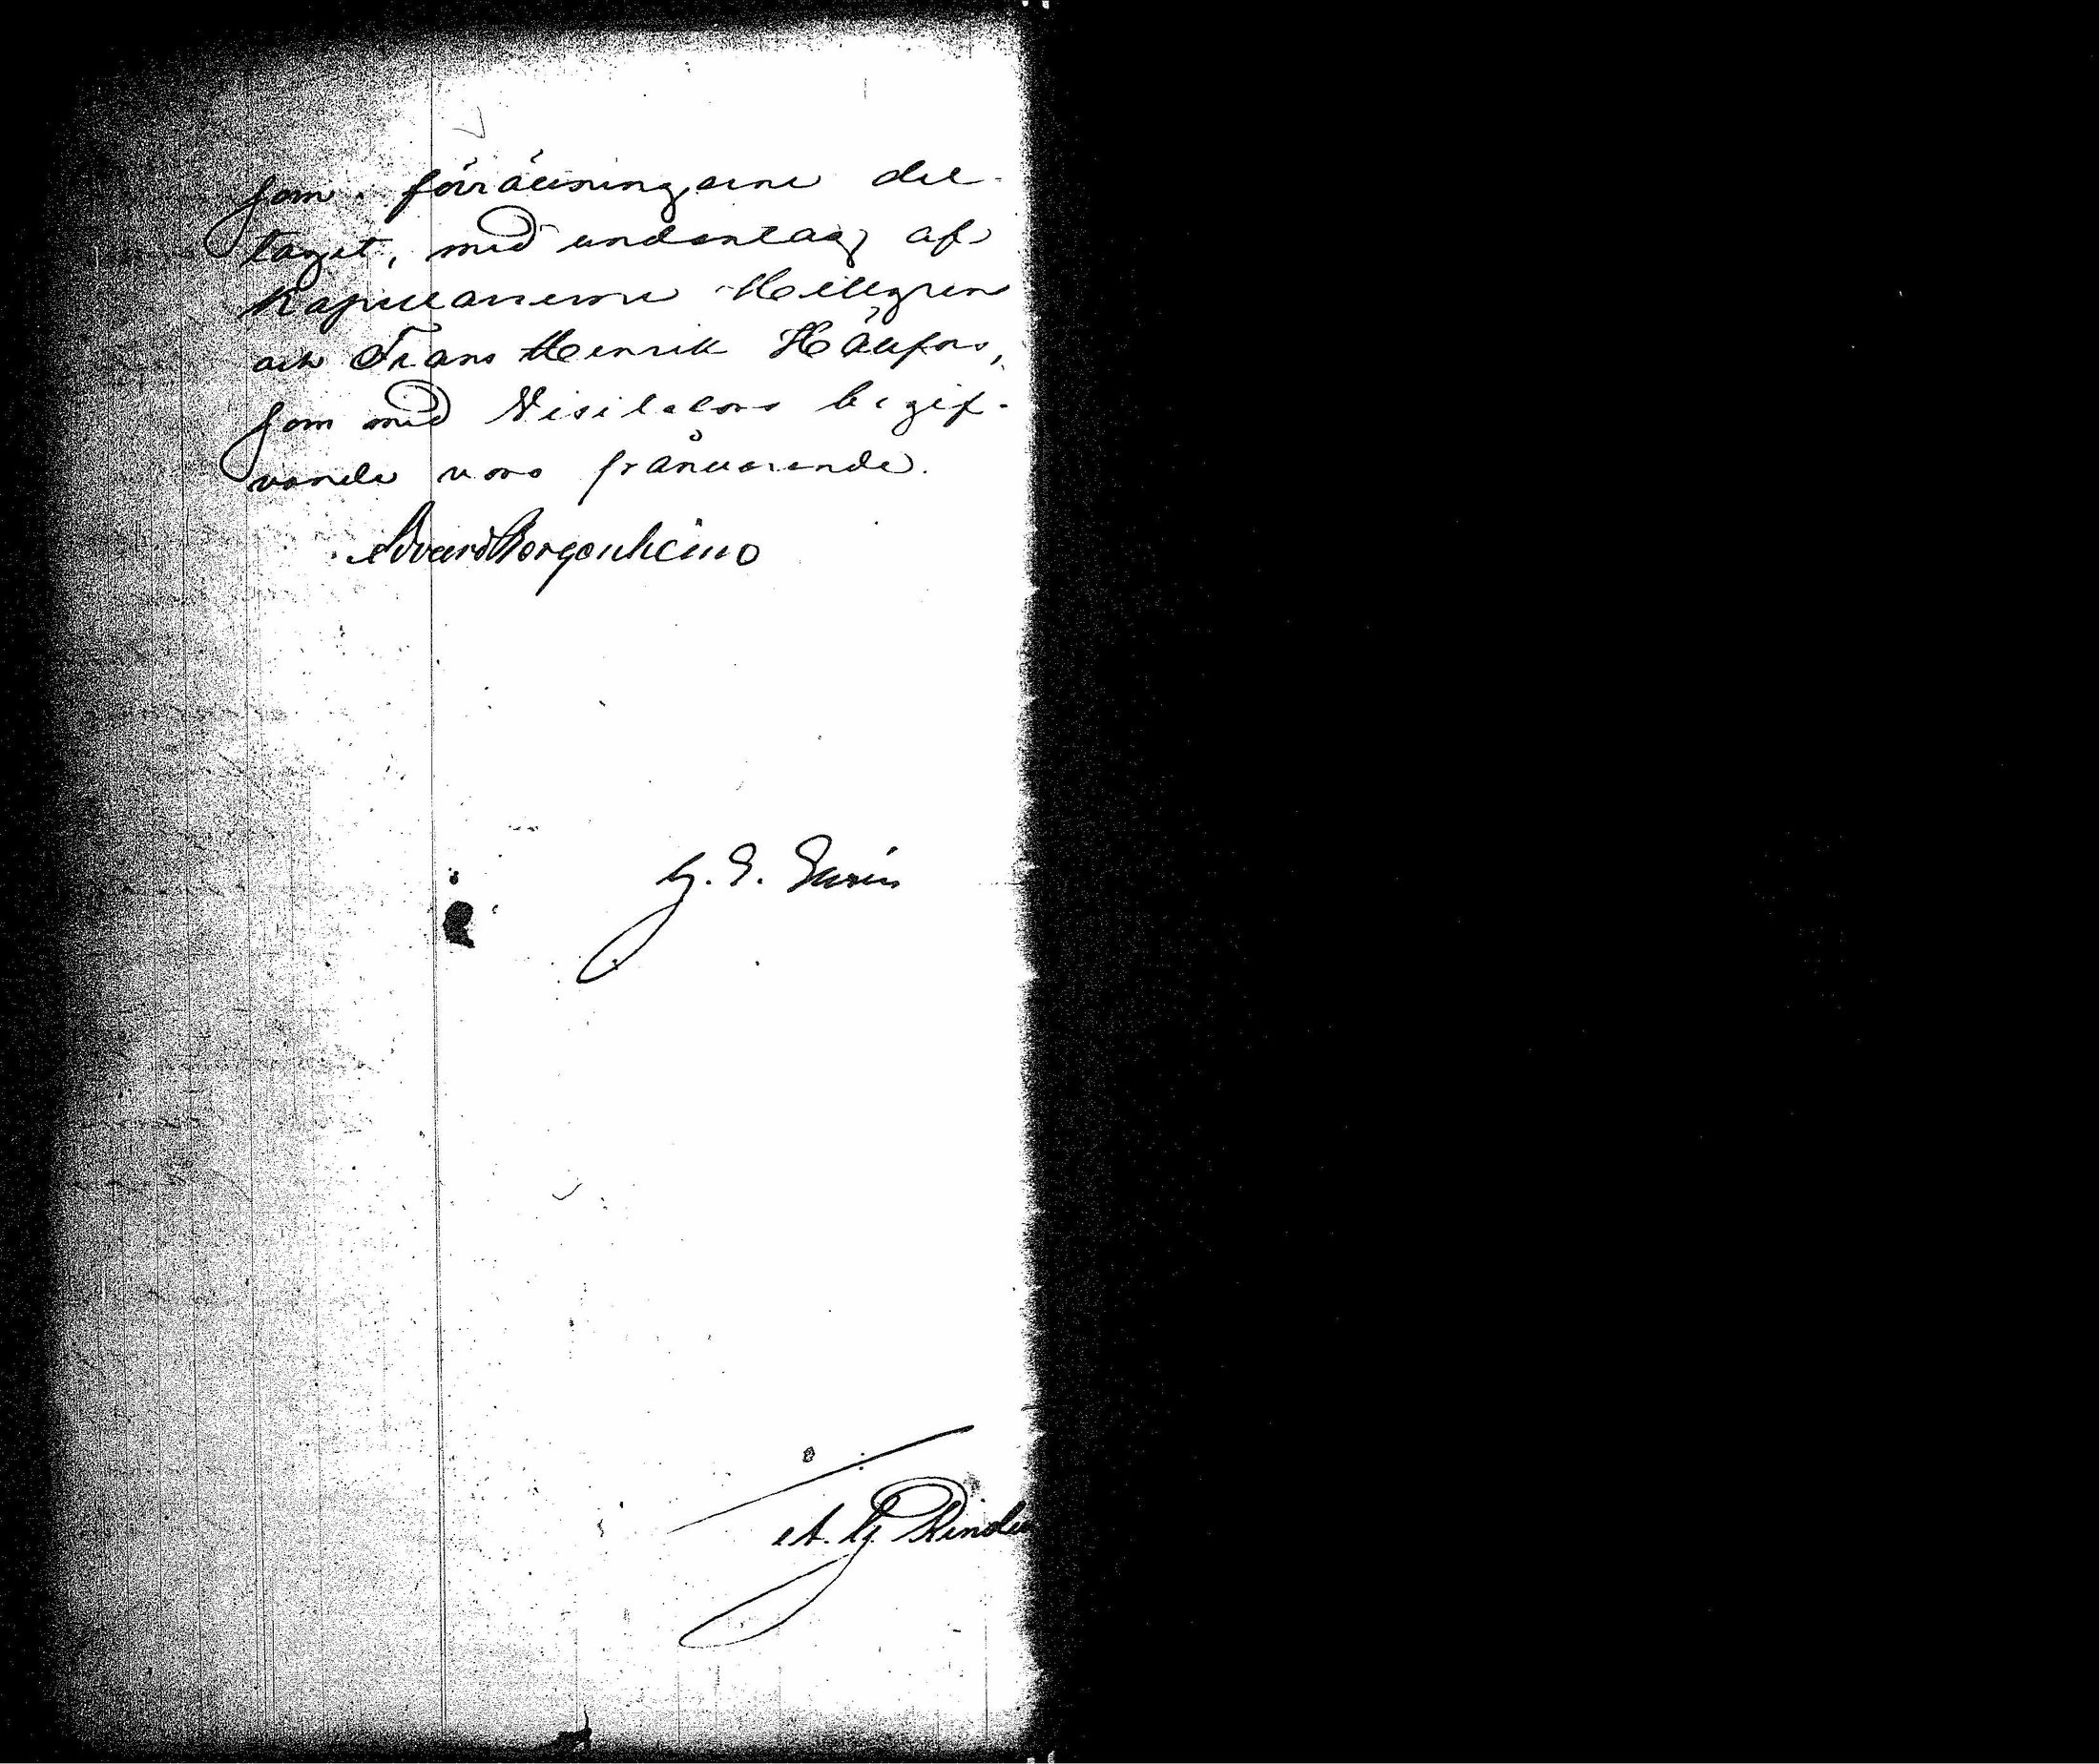 som i förrättningarne del-
taget, med undantag af
Kapellanerne Hellgren
och Frans Henrik Hällfors,
som med Visitators begif-
vande voro frånvarande.
Edvard Borgenheimo
G. E.
A. G.